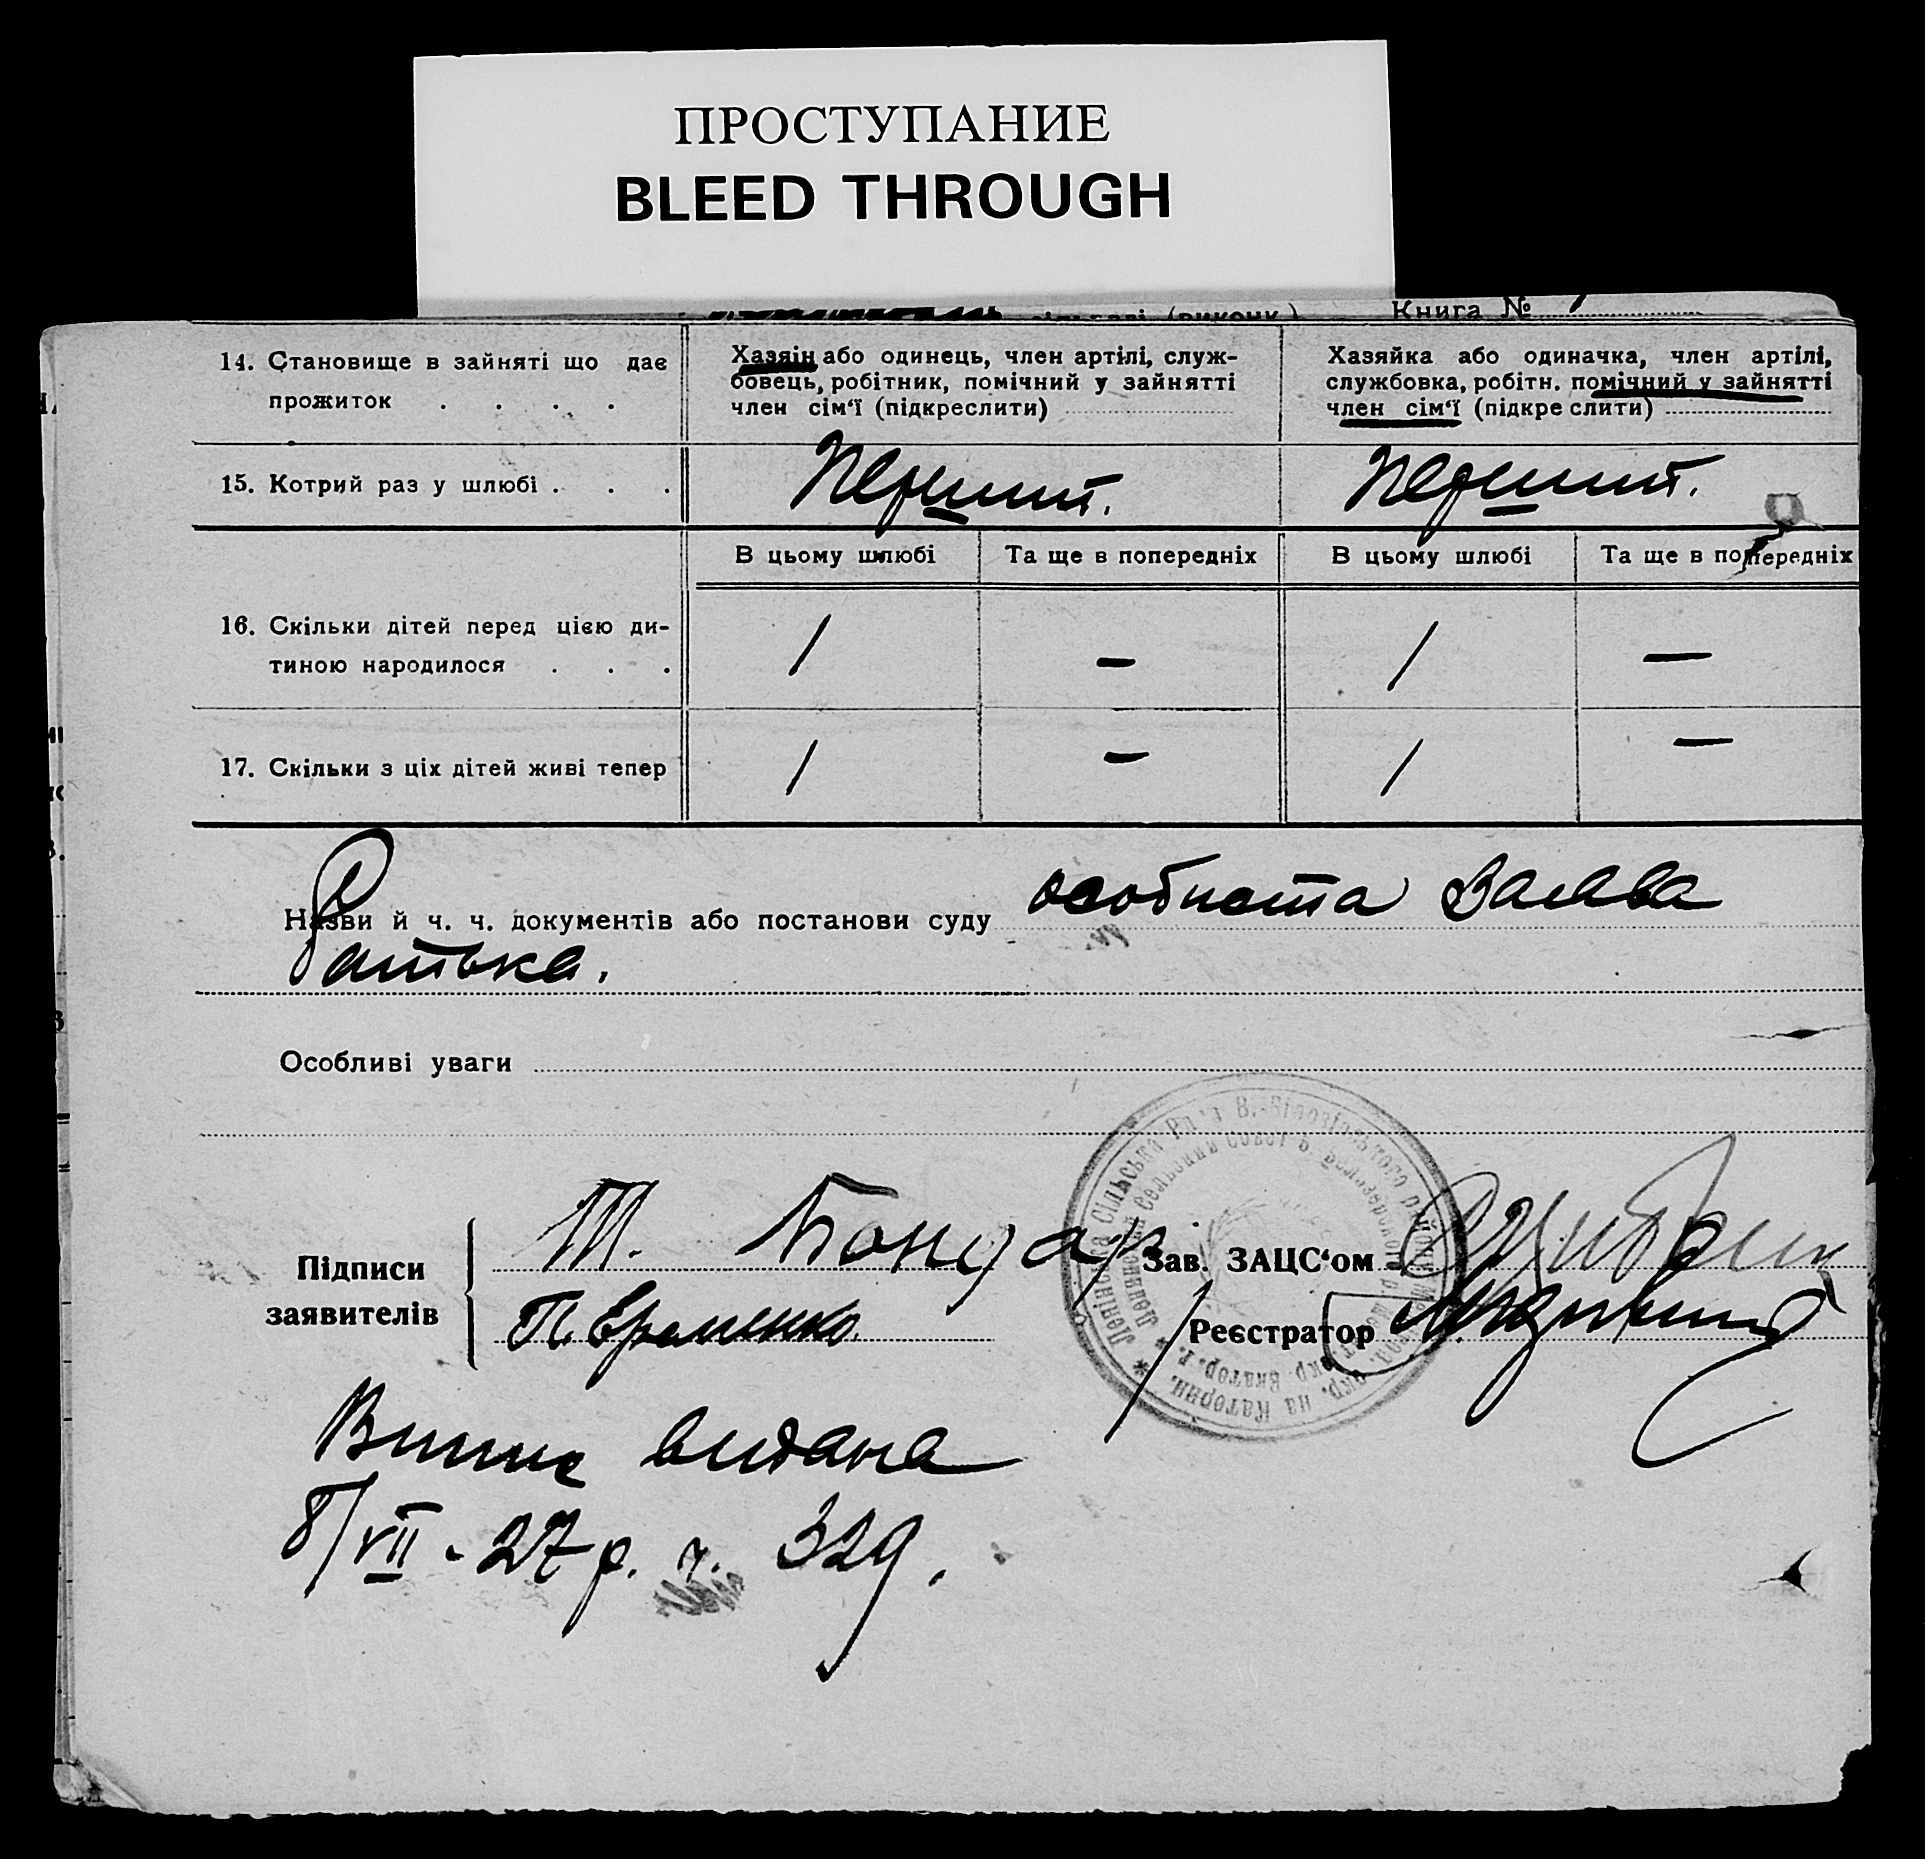 ПРОСТУПАНИЕ
BLEED THROUGH
Книга №
14. Становище в зайняті що дає прожиток . . . .
Хазяїн або одинець, член артілі, служ-
бовець, робітник, помічний у зайнятті
член сім‘ї (підкреслити)
Хазяйка або одиначка, член артілі,
службовка, робітн. помічний у зайнятті
член сім‘ї (підкреслити)
15. Котрий раз у шлюбі . . .
Перший.
Перший.
В цьому шлюбі
Та ще в попередніх
В цьому шлюбі
Та ще в попередніх
16. Скільки дітей перед цією ди-
тиною народилося . . .
1
—
1
—
17. Скільки з ціх дітей живі тепер
1
—
1
—
Назви й ч. ч. документів або постанови суду особиста заява
батька.
Особливі уваги
Підписи
заявителів
Т. Бондар
П. Єременко
Зав. ЗАЦС‘ом
Реєстратор
Ленінська Сільська Рада
Випис видана
8/VII - 27 р. ч. 329.